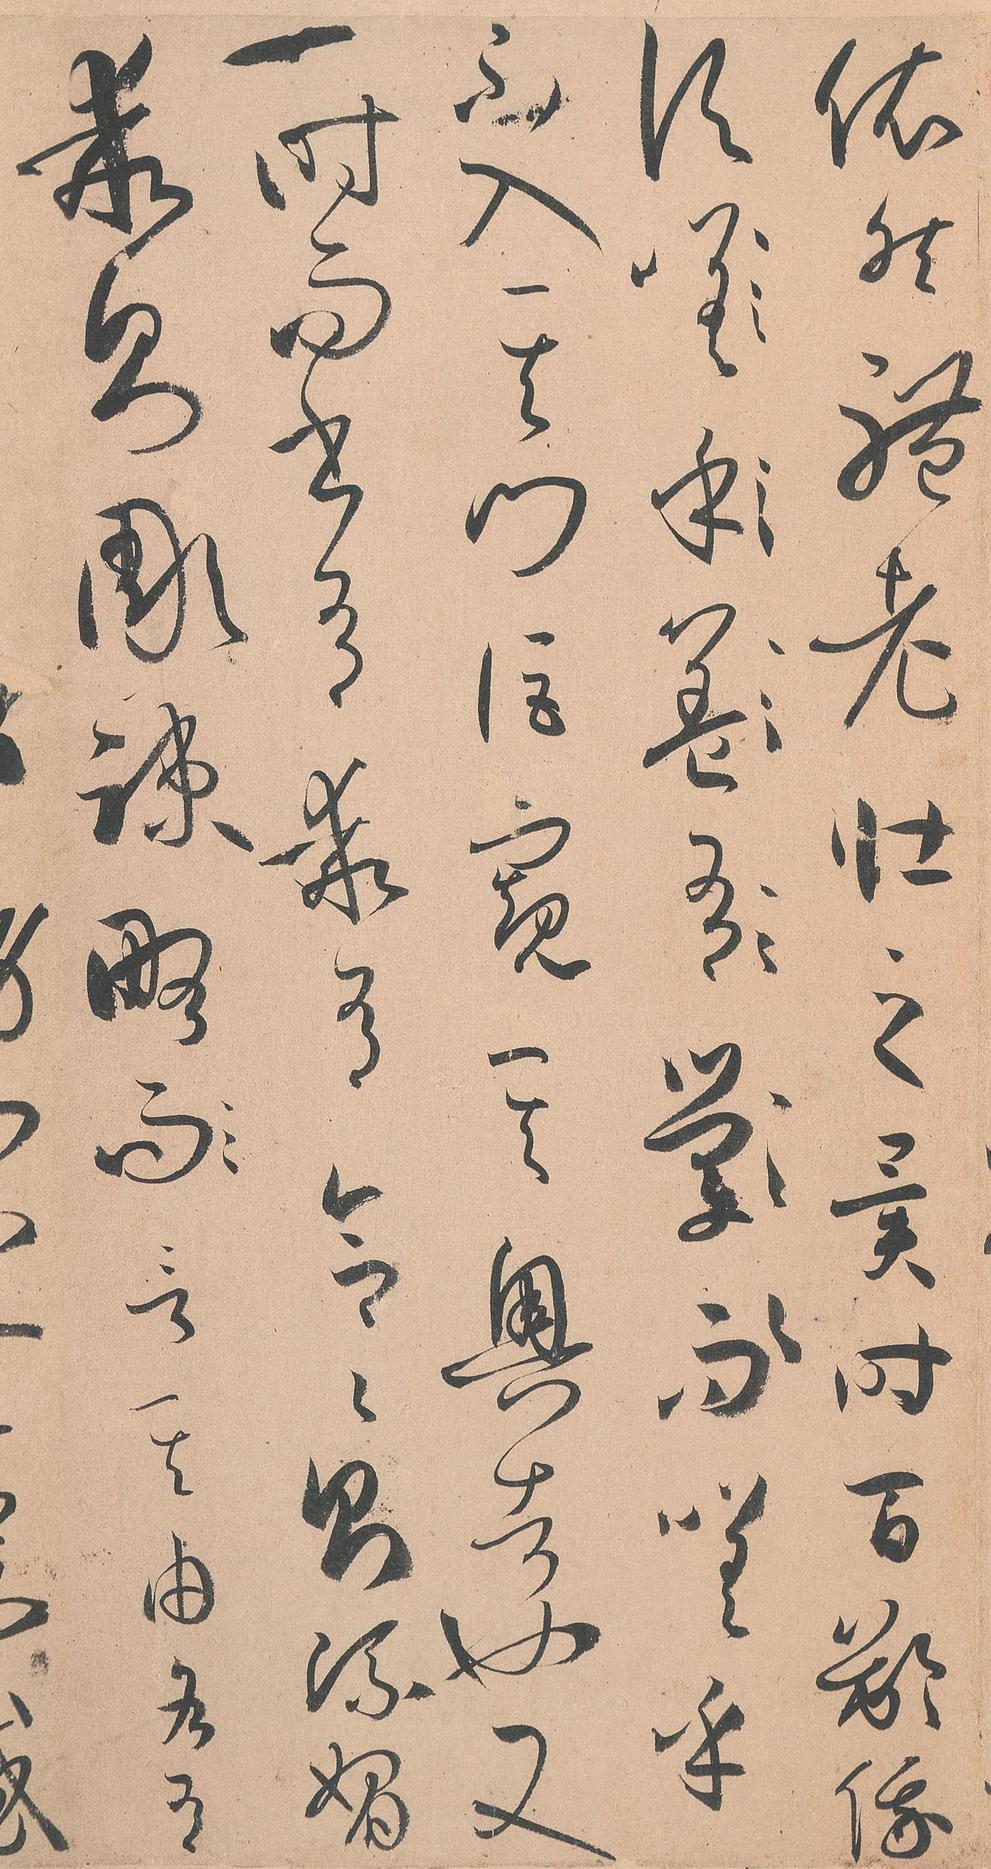 依然體老壯之異時百齡俄
頃嗟乎蓋有學而嗟乎
不入其門詎窺其奧者也又
一時而書有乖有合〻則流媚
乖則彫疎略而言其由各有